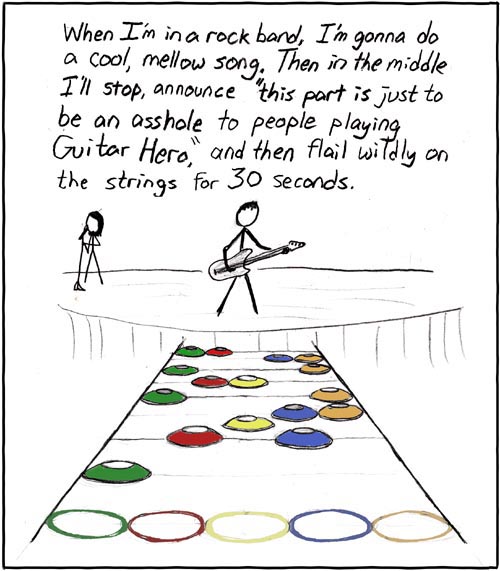 When I'm in a rock band, I'm gonna do
a cool, mellow song. Then in the middle
I'll stop, announce "this part is just to
be an asshole to people playing
Guitar Hero," and then flail wildly on
the strings for 30 seconds.